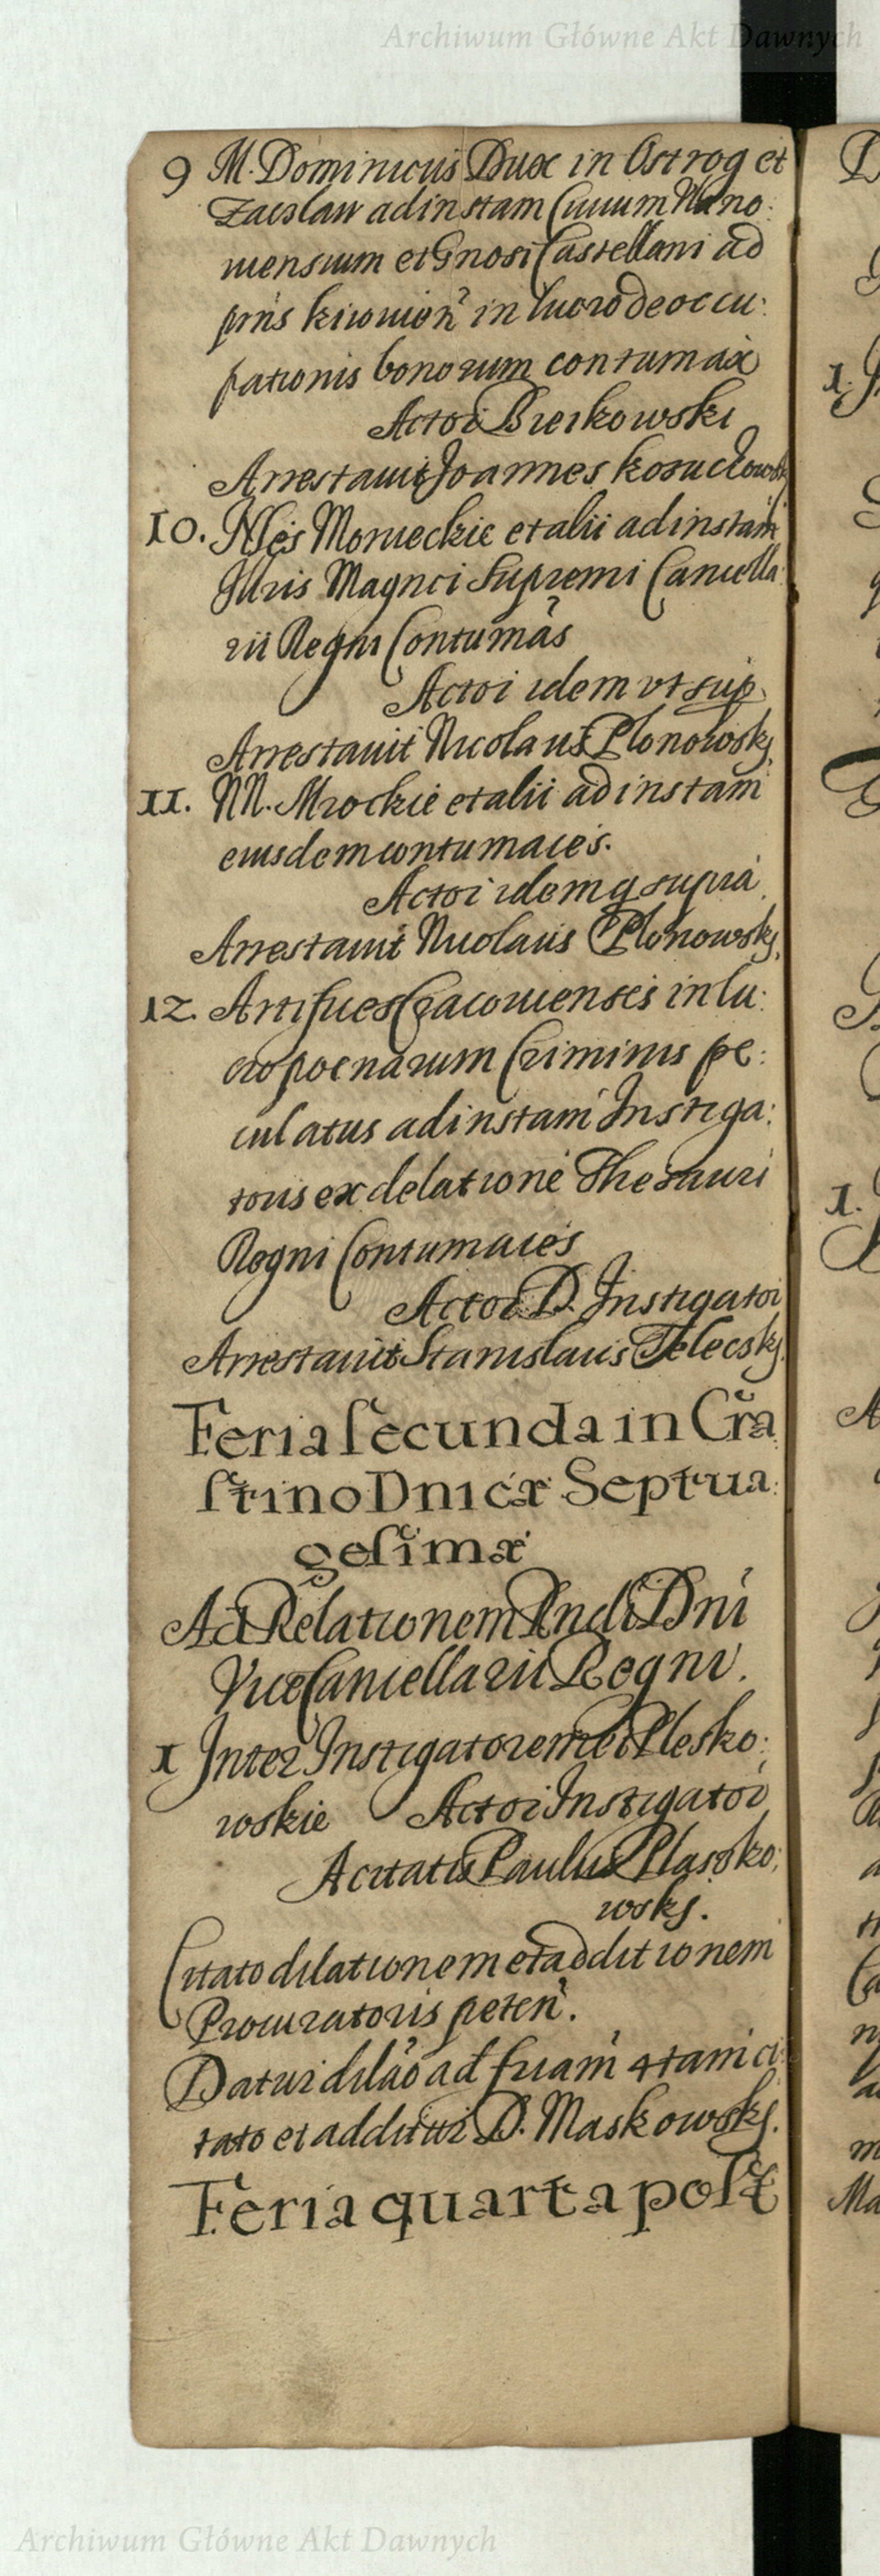 Archiwum Główne Akt Dawnych
9 M. Dominicus Dux in Ostrog et
Zaeslaw ad instam Ciuium
uiensium et Gnosi Castellani ad
prns kiiouień in lucro deoccu:
pationis bonorum contumax
Actor Bieikowski
Arrestauit Joannes
10. Nles Monieckie et alii ad instam
Illris Magnci Supremi Cancella
rii Regni Contumās
Actor idem vt sup
Arrestauit Nicolaus Plonowskj
11. NN. Mrockie et alii ad instam
eiusdem contumaces.
Actor idem q supra
Arrestauit Nicolaus Plonowskj
12. Artifices Cracouienses in lu:
cro poenarum Criminis pe:
culatus ad instam Instiga:
toris ex delatione Thesauri
Regni Contumaces
Actor D. Instigator
Arrestauit Stanislaus Telecskj
Feria secunda in Cra
stino Dnicæ Septua:
gesimæ
Ad Relationem Rndi Dni
Vice Cancellarii Regni.
1 Inter Instigatorem et Plesko:
wskie Actor Instigator
A citatis Paulus Plasko:
wskj.
Citato dilationem et additionem
Procuratoris peteń.
Datur dilāo ad friam 4tam ci
tato et additur D. Maskowskj.
Feria quarta post
Archiwum Główne Akt Dawnych